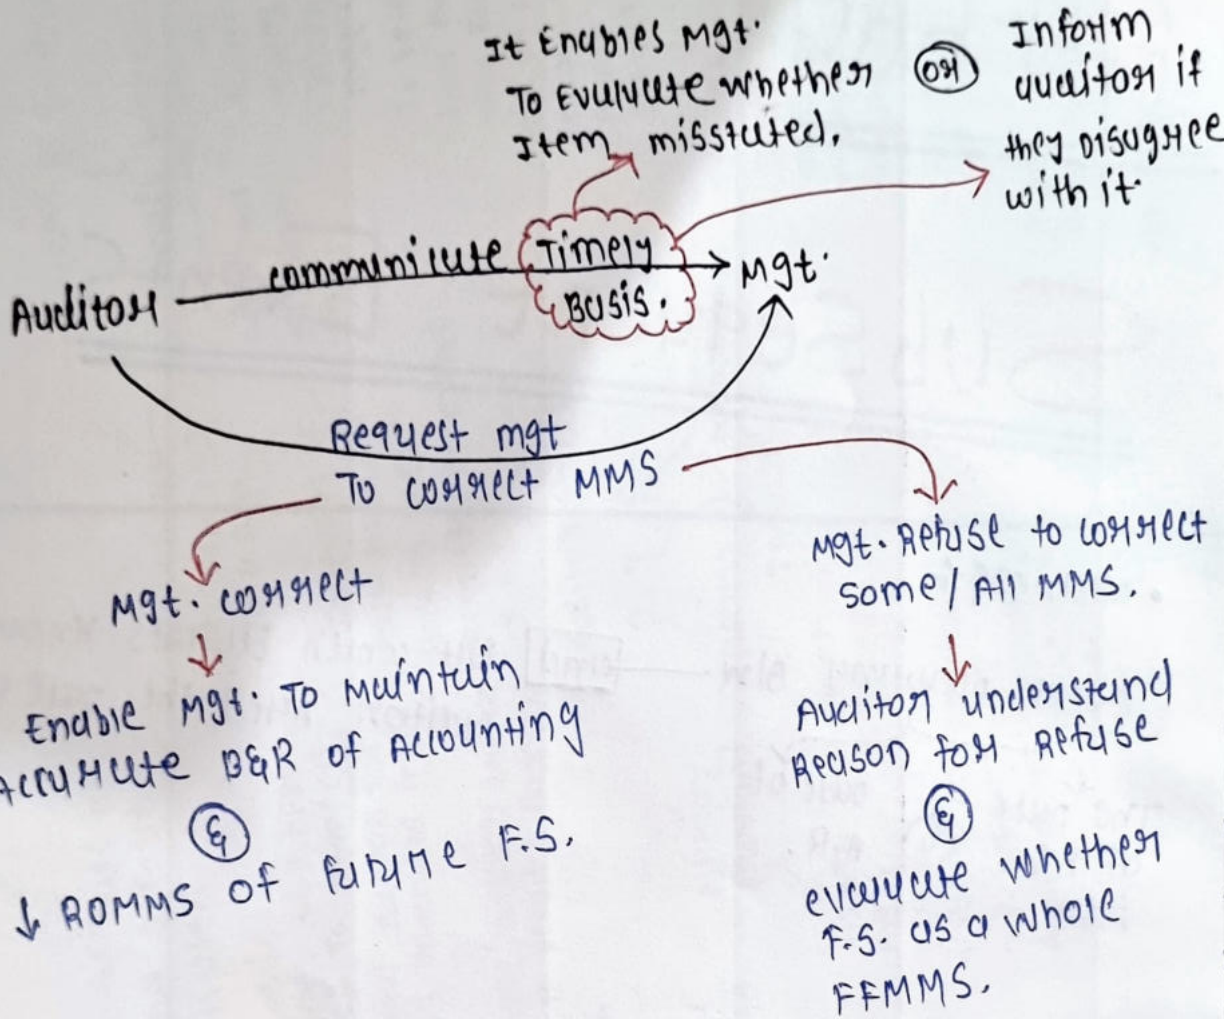 It Enables Mgt.
To Evaluate whether
Item misstated.
OR
Inform
auditor if
they Disagree
with it.
Auditor
communicate
Timely
Basis.
Mgt.
Request mgt
To correct MMS
Mgt. correct
Enable Mgt. To Maintain
Accurate B&R of Accounting
&
↓ ROMMS of future F.S.
Mgt. Refuse to correct
some / All MMS.
Auditor understand
Reason for Refuse
&
evaluate whether
F.S. as a whole
FFMMS.